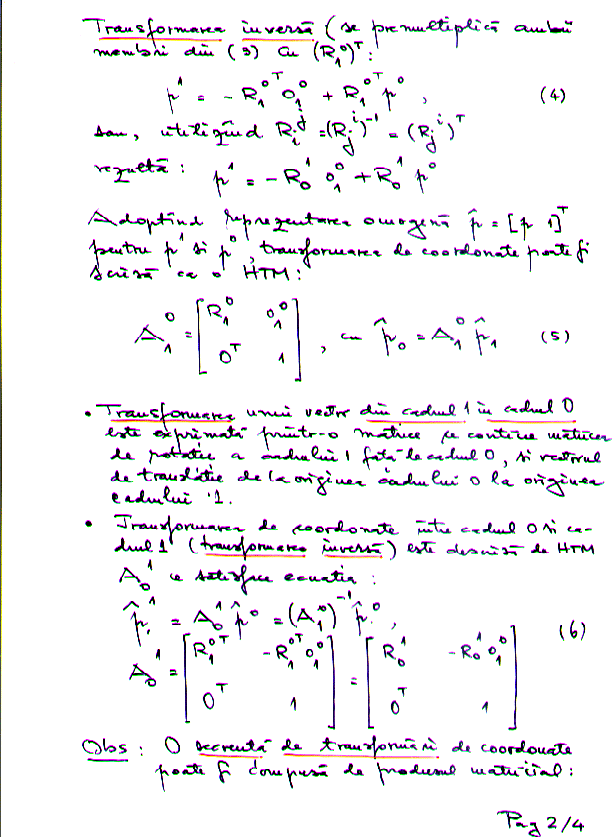 Transformarea inversă (se premultiplică ambii
membri din (3) cu (R₁⁰)ᵀ:
p¹ = - R₁⁰ᵀ o₁⁰ + R₁⁰ᵀ p⁰ , (4)
sau, utilizînd Rᵢʲ = (Rⱼⁱ)⁻¹ = (Rⱼⁱ)ᵀ
rezultă : p¹ = - R₀¹ o₁⁰ + R₀¹ p⁰
Adoptînd reprezentarea omogenă p̂ = [p 1]ᵀ
pentru p¹ si p⁰, transformarea de coordonate poate fi
scrisă ca o HTM:
A₁⁰ = [R₁⁰ o₁⁰
0ᵀ 1] , cu p̂₀ = A₁⁰ p̂₁ (5)
• Transformarea unui vector din cadrul 1 în cadrul 0
este exprimată printr-o matrice ce conține matricea
de rotație a cadrului 1 față de cadrul 0, si vectorul
de translație de la originea cadrului 0 la originea
cadrului 1.
• Transformarea de coordonate între cadrul 0 si ca-
drul 1 (transformarea inversă) este descrisă de HTM
A₀¹ ce satisface ecuatia :
p̂¹ = A₀¹ p̂⁰ = (A₁⁰)⁻¹ p̂⁰ ,
A₀¹ = [R₁⁰ᵀ - R₁⁰ᵀ o₁⁰
0ᵀ 1] = [R₀¹ - R₀¹ o₁⁰
0ᵀ 1] (6)
Obs : O secvență de transformări de coordonate
poate fi compusă de produsul matricial :
Pag 2/4